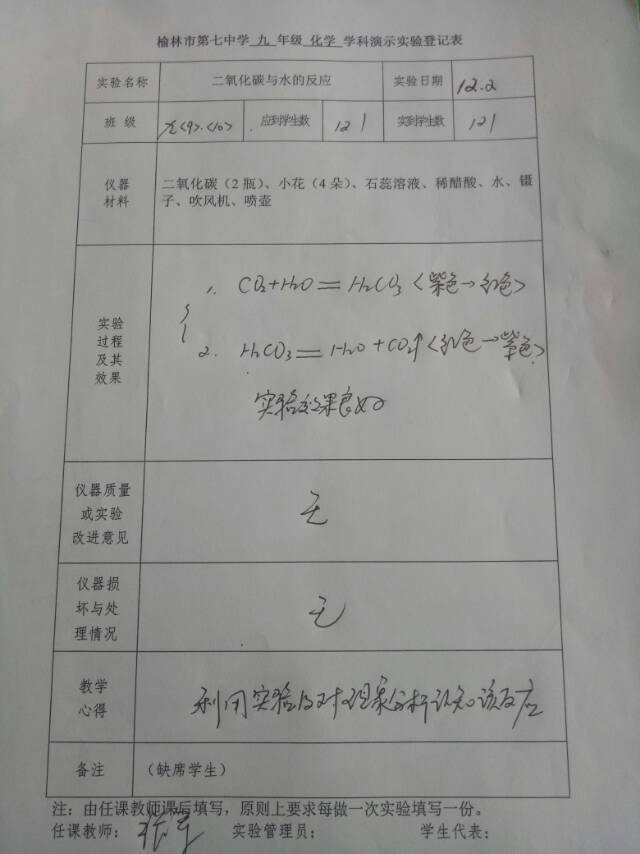 榆林市第七中学 九 年级 化学 学科演示实验登记表
实验名称 二氧化碳与水的反应 实验日期 12.2
班 级 <9>.<10> 应到学生数 121 实到学生数 121
仪器
材料
二氧化碳（2瓶）、小花（4朵）、石蕊溶液、稀醋酸、水、镊
子、吹风机、喷壶
实验
过程
及其
效果
1. CO₂+H₂O═H₂CO₃<紫色→红色>
2. H₂CO₃═H₂O+CO₂↑<红色→紫色>
实验效果良好
仪器质量
或实验
改进意见
无
仪器损
坏与处
理情况
无
教学
心得
利用实验及对现象分析认知该反应
备注 （缺席学生）
注：由任课教师课后填写，原则上要求每做一次实验填写一份。
任课教师： 实验管理员： 学生代表：